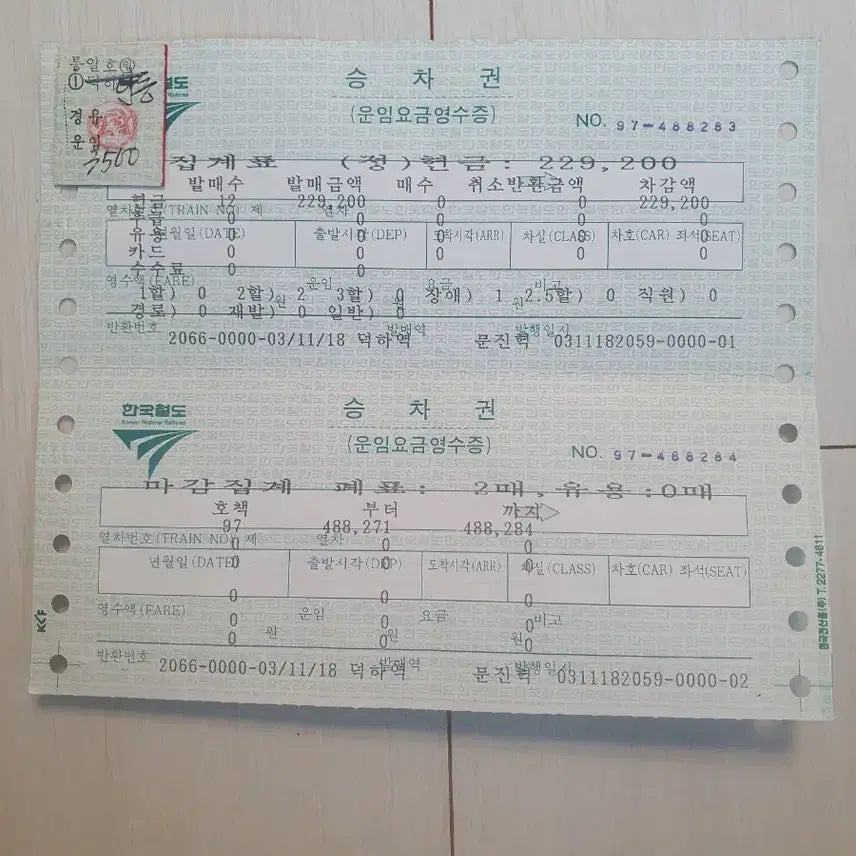 통일호
①
경유
운임
7500
철도
승 차 권
(운임요금영수증)
NO. 97-488283
집계표 (정)현금: 229,200
발매수 발매금액 매수 취소반환금액 차감액
현금 12 229,200 0 0 229,200
열차번호(TRAIN NO) 제 열차
후급 0 0 0 0 0
유용 0 0 0 0 0
년월일(DATE) 출발시각(DEP) 도착시각(ARR) 차실(CLASS) 차호(CAR) 좌석(SEAT)
카드 0 0 0 0 0
수수료 0 0
영수액(FARE) 운임 요금 비고
1할) 0 2할) 2 3할) 0 장애) 1 2.5할) 0 직원) 0
원 원
경로) 0 재발) 0 일반) 0
반환번호 발매역 발행일시
2066-0000-03/11/18 덕하역 문진혁 0311182059-0000-01
한국철도
Korean National Railroad
승 차 권
(운임요금영수증)
NO. 97-488284
마감집계 폐표: 2매,유용:0매
호책 부터 까지
97 488,271 488,284
열차번호(TRAIN NO) 제 열차
0 0 0
년월일(DATE) 출발시각(DEP) 도착시각(ARR) 차실(CLASS) 차호(CAR) 좌석(SEAT)
0 0 0
0 0 0
영수액(FARE) 운임 요금 비고
0 0 0
원 원 원
0 0 0
반환번호 발매역 발행일시
2066-0000-03/11/18 덕하역 문진혁 0311182059-0000-02
KCF
T.2277-4811